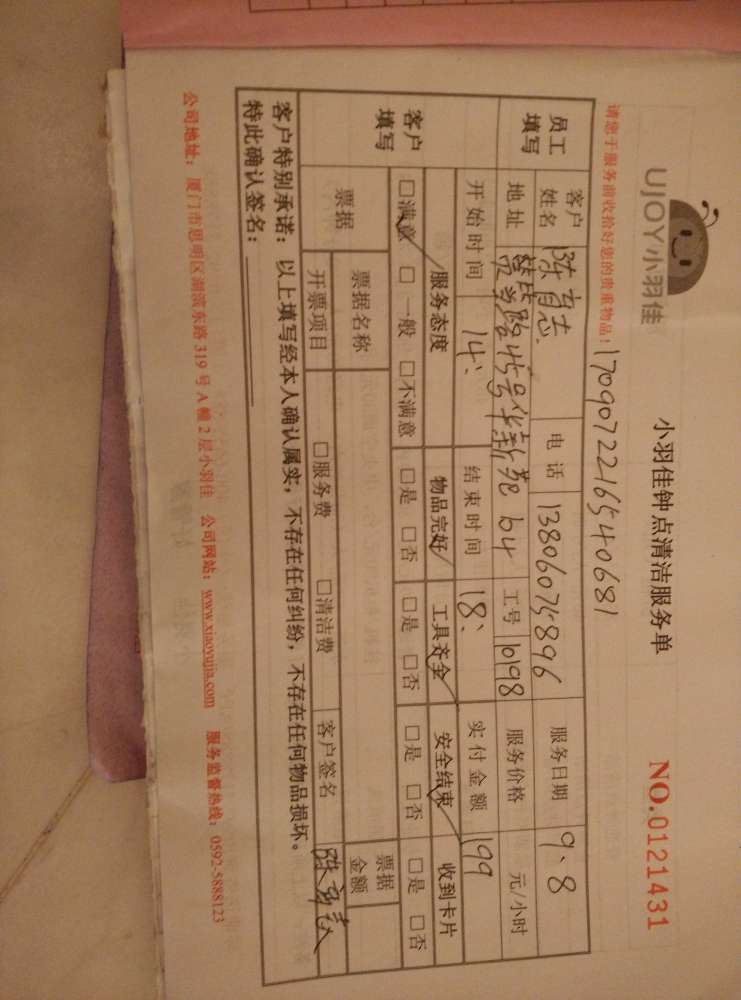 UJOY小羽佳
小羽佳钟点清洁服务单
NO.0121431
请您于服务前收拾好您的贵重物品！
1709072216540681
员工填写
客户姓名 陈育志 电话 13806075896 服务日期 9、8
地址 45号华新苑 b4 工号 10198 服务价格 元/小时
开始时间 14： 结束时间 18： 实付金额 199
客户填写
服务态度 物品完好 工具齐全 安全结束 收到卡片
□满意 □一般 □不满意 □是 □否 □是 □否 □是 □否 □是 □否
票据 票据名称 票据金额
开票项目 □服务费 □清洁费 客户签名
客户特别承诺：以上填写经本人确认属实，不存在任何纠纷，不存在任何物品损坏。
特此确认签名：
公司地址：厦门市思明区湖滨东路319号A幢2层小羽佳 公司网站：www.xiaoyujia.com 服务监督热线：0592-5888123